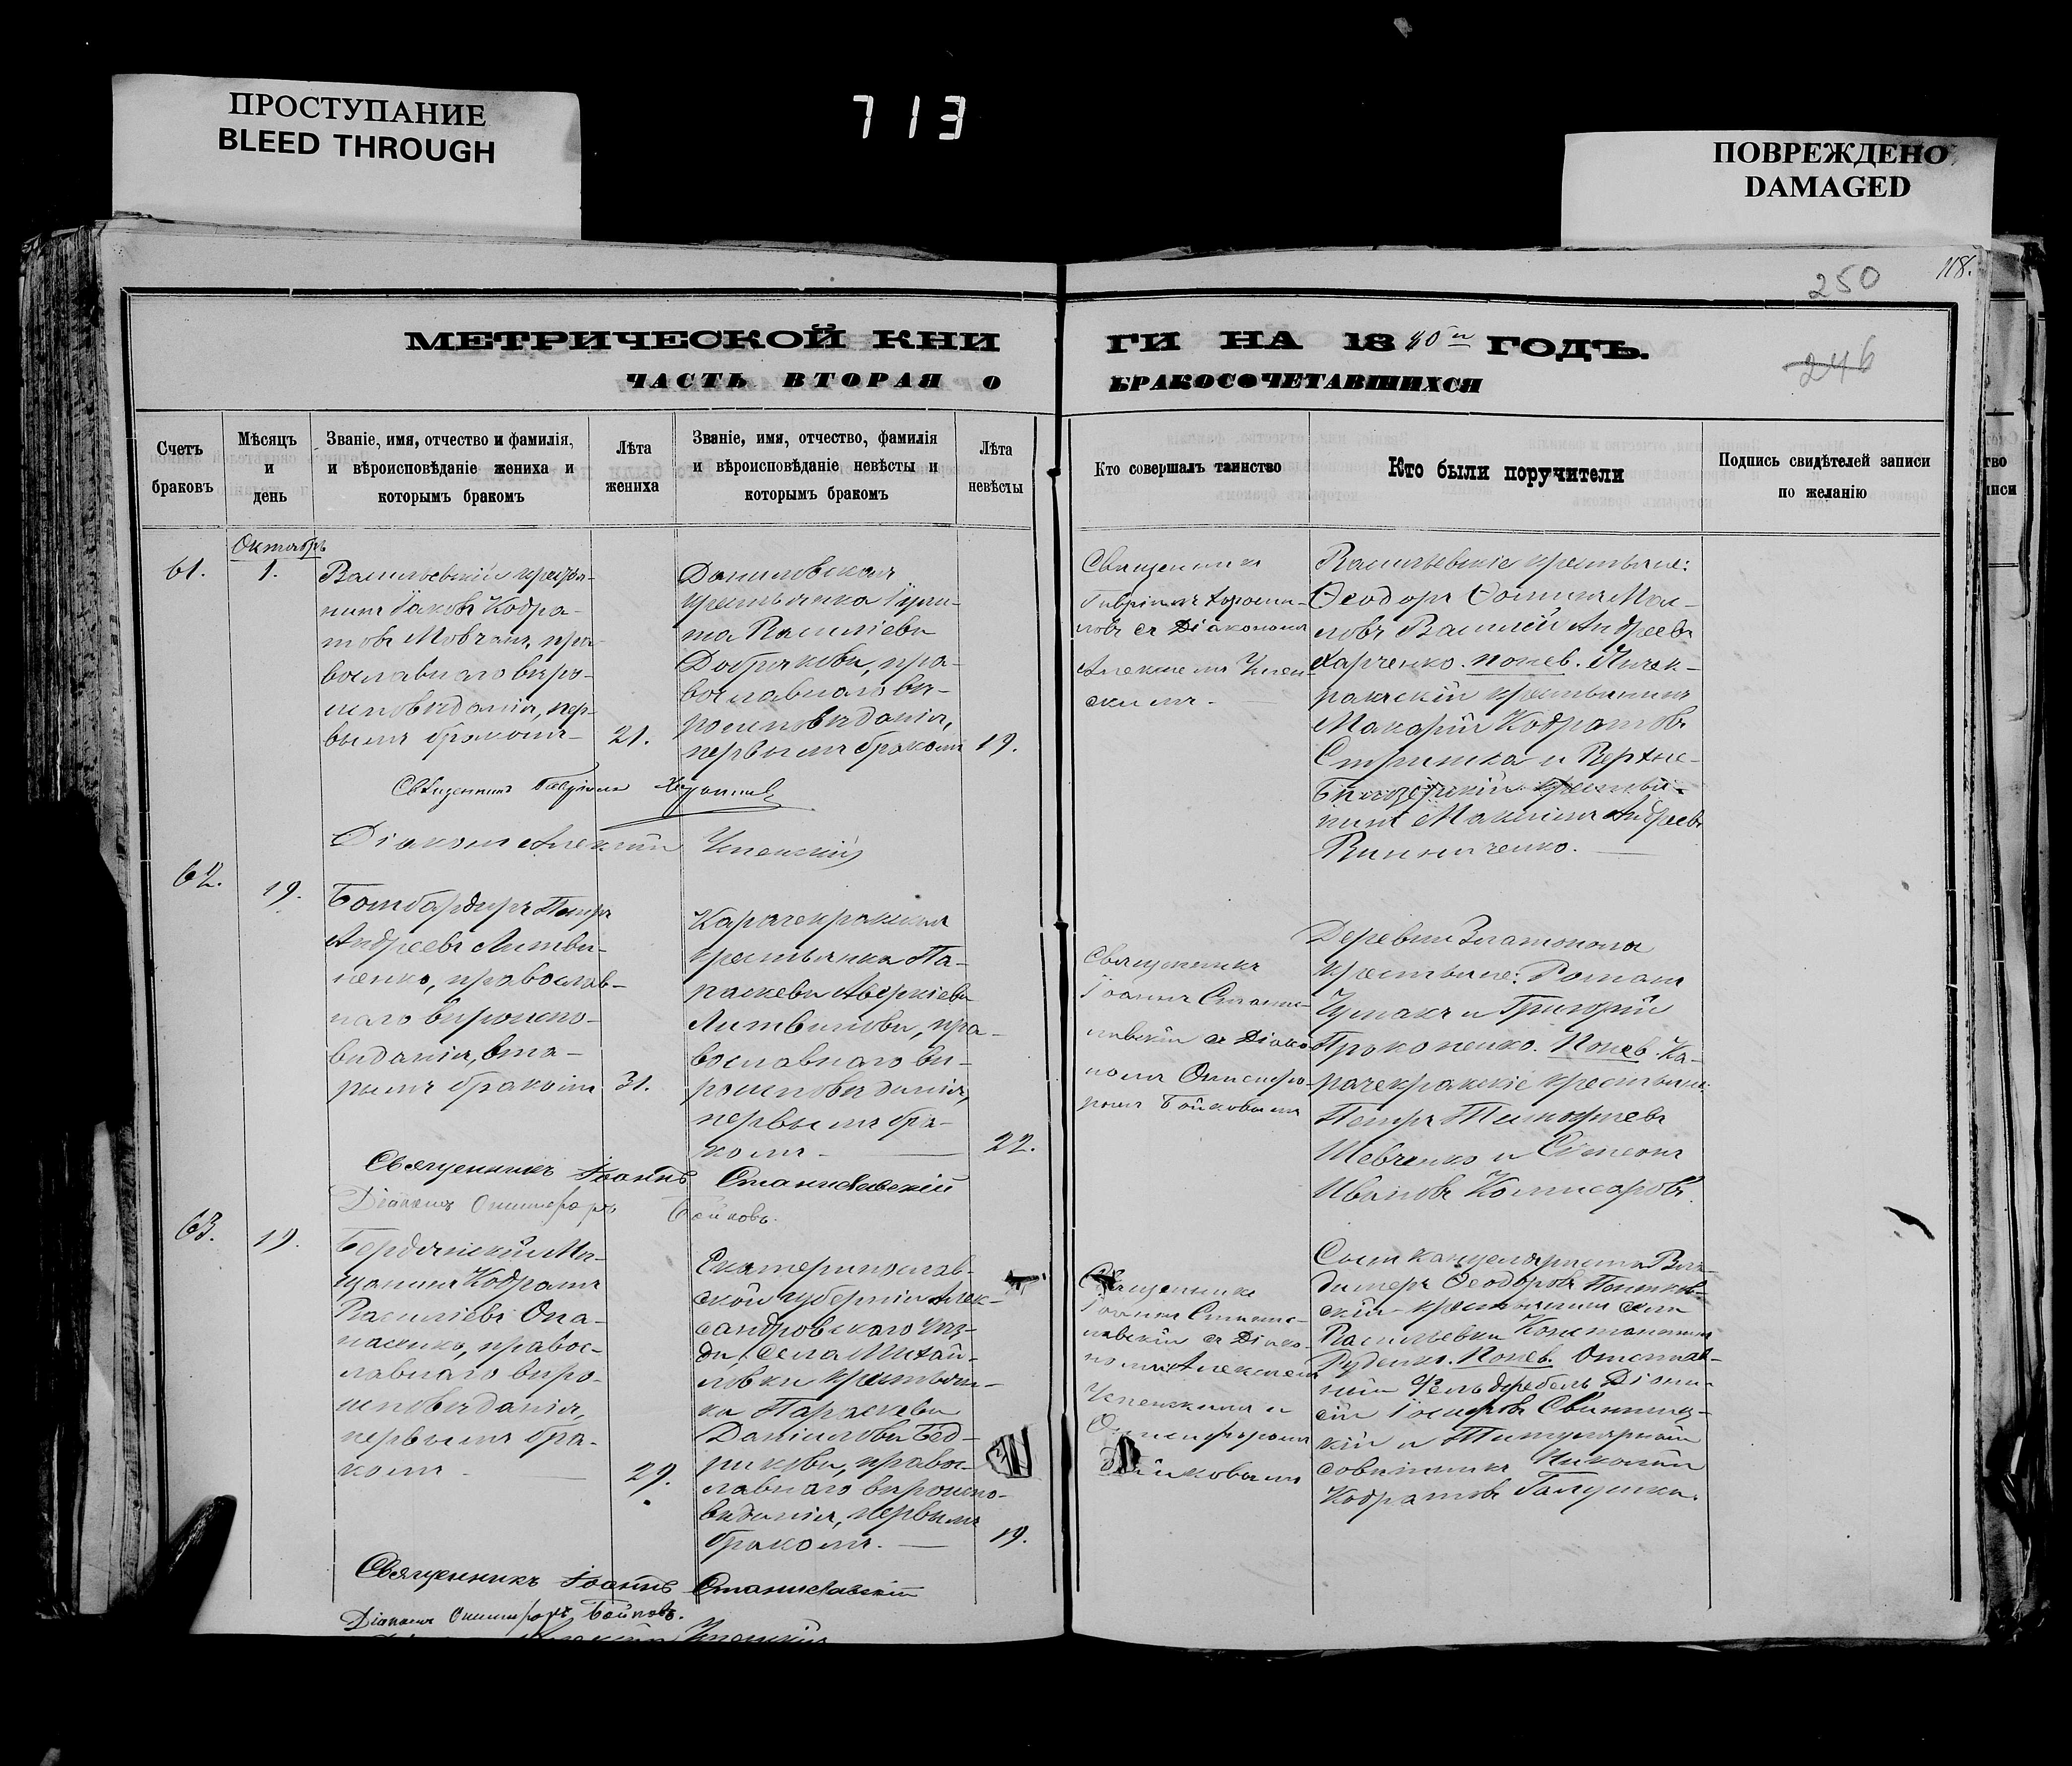 ПРОСТУПАНИЕ
BLEED THROUGH
713
ПОВРЕЖДЕНО
DAMAGED
118.
250
246
МЕТРИЧЕСКОЙ КНИ
ГИ НА 1880 й ГОДЪ.
ЧАСТЬ ВТОРАЯ О
БРАКОСОЧЕТАВШИХСЯ
Счетъ браковъ
Мѣсяцъ и день
Званіе, имя, отчество и фамилія, и вѣроисповѣданіе жениха и которымъ бракомъ
Лѣта жениха
Званіе, имя, отчество, фамилія и вѣроисповѣданіе невѣсты и которымъ бракомъ
Лѣта невѣсты
Кто совершалъ таинство
Кто были поручители
Подпись свидѣтелей записи по желанію
61.
Октябрь
1.
Васильевскій крестья-
нинъ Іаковъ Кодра-
товъ Мовчанъ, пра-
вославнаго вѣро-
исповѣданія, пер-
вымъ бракомъ
21.
Даниловская
крестьянка Іули-
та Василіева
Добрякова, пра-
вославнаго вѣ-
роисповѣданія,
первымъ бракомъ
19.
Священникъ
Гавріилъ
съ Діакономъ
Алексіемъ Успен-
скимъ.
Васильевскіе крестьяне:
Ѳеодоръ Ѳоминъ
Василій Андреевъ
Харченко. Понев.
крестьянинъ
Макарій Кодратовъ
и Верхне-
Бѣлозерскій крестья-
нинъ Максимъ Андреевъ
Винниченко.
Священникъ Гавріилъ
Діаконъ Алексій Успенскій
62.
19.
Бомбардиръ Петръ
Андреевъ Литви-
ненко, православ-
наго вѣроиспо-
вѣданія, вто-
рымъ бракомъ
31.
Карачекракская
крестьянка Па-
раскева Аверкіева
Литвинова, пра-
вославнаго вѣ-
роисповѣданія,
первымъ бра-
комъ
22.
Священникъ
Іоаннъ Станис-
лавскій съ Діако-
номъ Онисифо-
ромъ Бойковымъ
Деревни Златополя
крестьяне: Романъ
Чумакъ и Григорій
Прокопенко. Понев. Ка-
рачекракскіе крестьяне:
Петръ Тимофеевъ
Шевченко и Симеонъ
Ивановъ Комисаровъ.
Священникъ Іоаннъ Станиславскій
Діаконъ Онисифоръ Бойковъ.
63.
19.
Бердянскій Мѣ-
щанинъ Кодратъ
Василіевъ Опа-
насенко, правос-
лавнаго вѣро-
исповѣданія,
первымъ бра-
комъ
29.
Екатеринослав-
ской губерніи Алек-
сандровского уѣз-
да, села Михай-
ловки крестьян-
ка Параскева
Даніилова Бед-
рикова, правос-
лавнаго вѣроиспо-
вѣданія, первымъ
бракомъ.
19.
Священникъ
Іоаннъ Станис-
лавскій съ Діако-
номъ Алексіемъ
Успенскимъ и
Онисифоромъ
Бойковымъ
Сынъ канцеляриста Вла-
димеръ Ѳеодоровъ
крестьянинъ села
Васильевки Константинъ
Руденко. Понев. Отстав-
ной Фельдфебель Діони-
сій Іосифовъ Свинниц-
кій и Титулярный
совѣтникъ Николай
Кодратовъ Галушка.
Священникъ Іоаннъ Станиславскій
Діаконъ Онисифоръ Бойковъ.
Успенскій